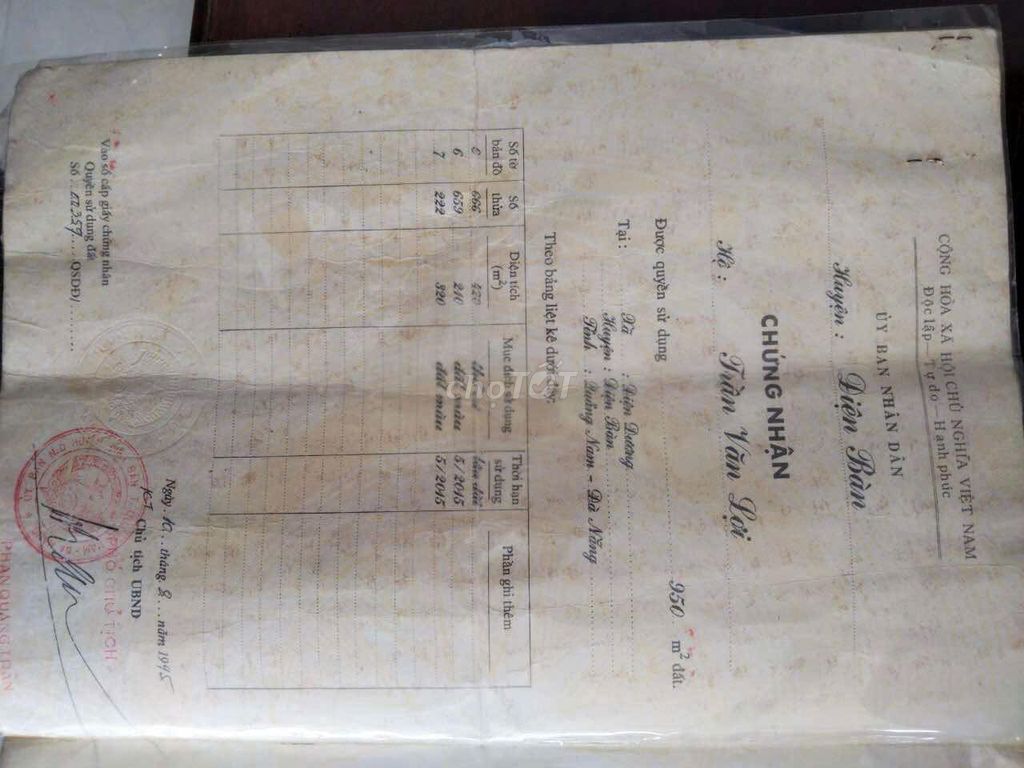 CỘNG HÒA XÃ HỘI CHỦ NGHĨA VIỆT NAM
Độc lập — Tự do — Hạnh phúc
ỦY BAN NHÂN DÂN
Huyện : Điện Bàn
CHỨNG NHẬN
Hộ : Trần Văn Lợi
Được quyền sử dụng 950 m² đất.
Tại : Xã : Điện Dương
Huyện : Điện Bàn
Tỉnh : Quảng Nam - Đà Nẵng
Theo bảng liệt kê dưới đây
Số tờ bản đồ Số thửa Diện tích (m²) Mục đích sử dụng Thời hạn sử dụng Phần ghi thêm
6 666 420 lâu dài
6 659 210 đất màu 5/2015
7 222 320 đất màu 5/2015
choTỐT
Ngày tháng 8 năm 1995
Vào sổ cấp giấy chứng nhận
Quyền sử dụng đất
Số 359 QSDĐ/
KT Chủ tịch UBND
PHÓ CHỦ TỊCH
PHAN QUANG TRÂN